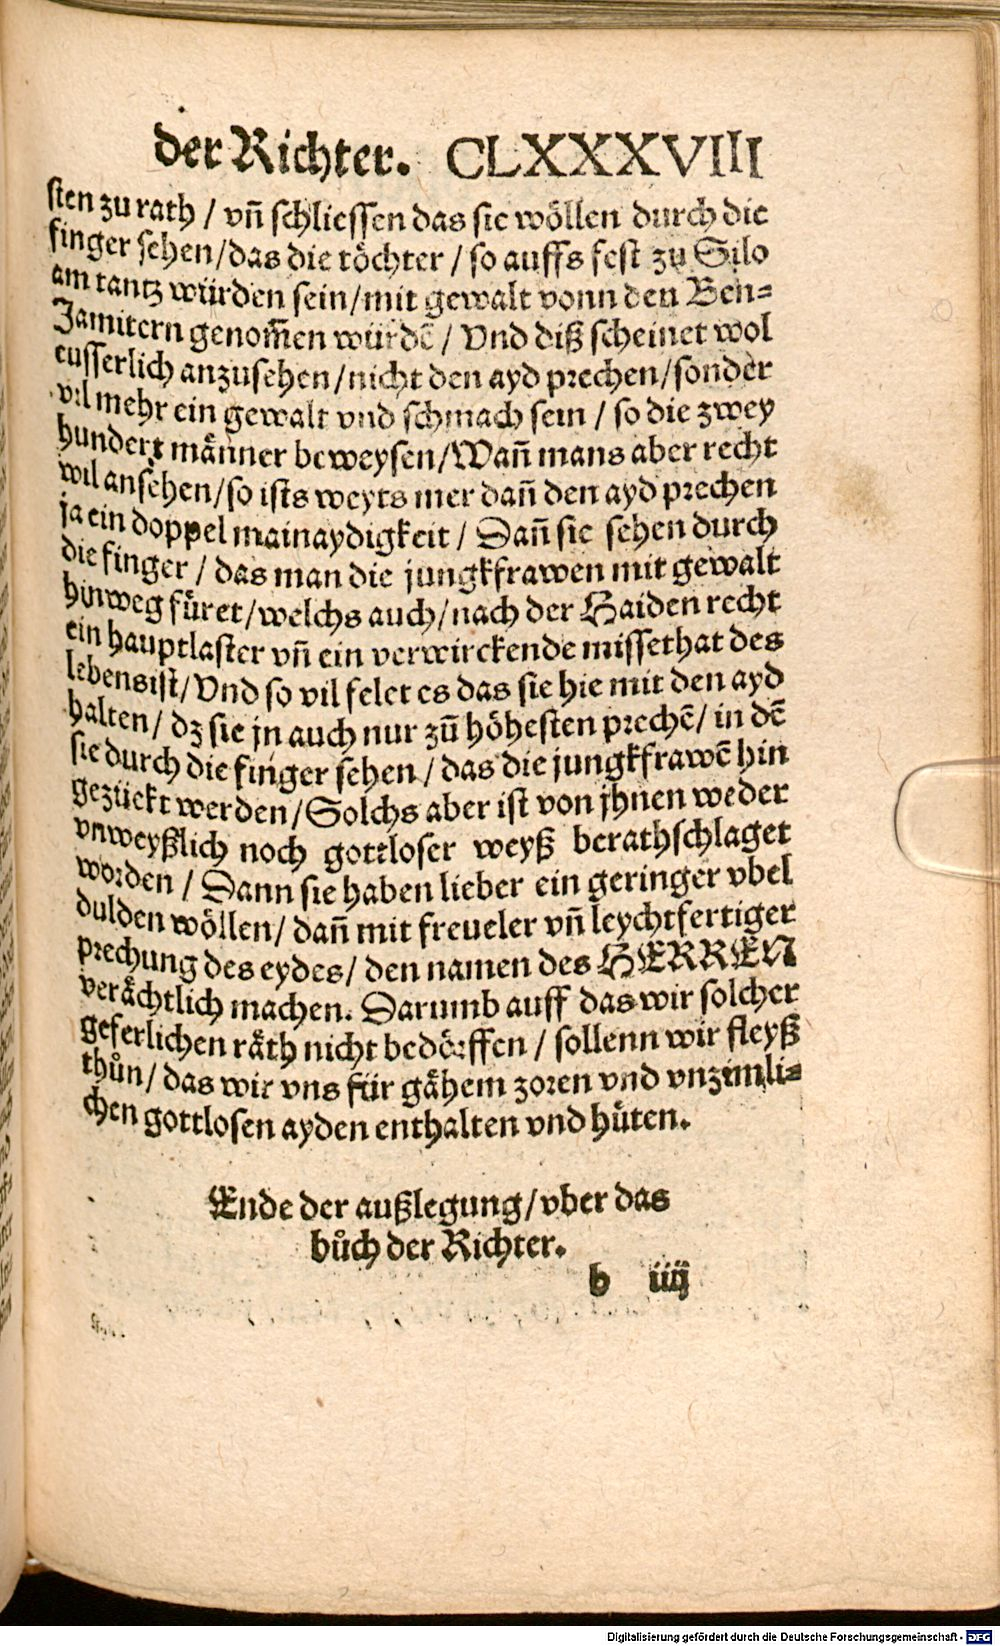 der Richter. CLXXXVIII
sten zu rath / vn̄ schliessen das sie wöllen durch die
finger sehen/das die töchter / so auffs fest zu Silo
am tantz würden sein/mit gewalt vonn den Ben=
Jamitern genom̄en würdē / Vnd diß scheinet wol
eusserlich anzusehen/nicht den ayd prechen/sonder
vil mehr ein gewalt vnd schmach sein / so die zwey
hundert männer beweysen/Wan̄ mans aber recht
wil ansehen/so ists weyts mer dan̄ den ayd prechen
ja ein doppel mainaydigkeit / Dan̄ sie sehen durch
die finger / das man die jungkfrawen mit gewalt
hinweg füret/welchs auch/nach der Haiden recht
ein hauptlaster vn̄ ein verwirckende missethat des
lebens ist/Vnd so vil felet es das sie hie mit den ayd
halten/ dz sie jn auch nur zū höhesten prechē/ in dē
sie durch die finger sehen / das die jungkfrawē hin
gezückt werden/Solchs aber ist von jhnen weder
vnweyßlich noch gottloser weyß berathschlaget
worden / Dann sie haben lieber ein geringer vbel
dulden wöllen/ dan̄ mit freueler vn̄ leychtfertiger
prechung des eydes/ den namen des HERREN
verächtlich machen. Darumb auff das wir solcher
geferlichen räth nicht bedörffen / sollenn wir fleyß
thůn/ das wir vns für gähem zoren vnd vnzimli=
chen gottlosen ayden enthalten vnd hüten.
Ende der außlegung/vber das
bůch der Richter.
b iiij
Digitalisierung gefördert durch die Deutsche Forschungsgemeinschaft - DFG